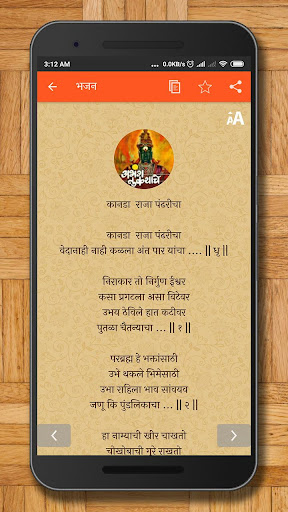 3:12 AM
0.0KB/s
भजन
AA
अभंग तुकयाचे
कानडा राजा पंढरीचा
कानडा राजा पंढरीचा
वेदानाही नाही कळला अंत पार याचा .... || धृ ||
निराकार तो निर्गुण ईश्वर
कसा प्रगटला असा विटेवर
उभय ठेविले हात कटीवर
पुतळा चैतन्याचा ... || १ ||
परब्रह्म हे भक्तांसाठी
उभे थकले भिमेसाठी
उभा राहिला भाव सावयव
जणू कि पुंडलिकाचा ... || २ ||
हा नाम्याची खीर चाखतो
चोखोबाची गुरे राखतो